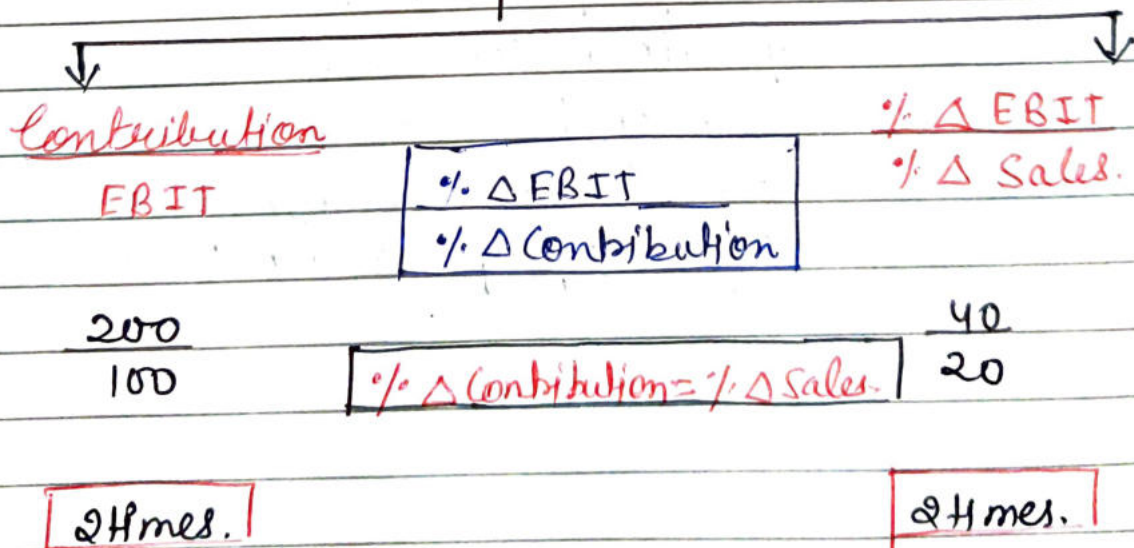 Contribution
EBIT
% Δ EBIT
% Δ Contribution
% Δ EBIT
% Δ Sales.
200
100
% Δ Contribution = % Δ Sales.
40
20
2 times.
2 times.